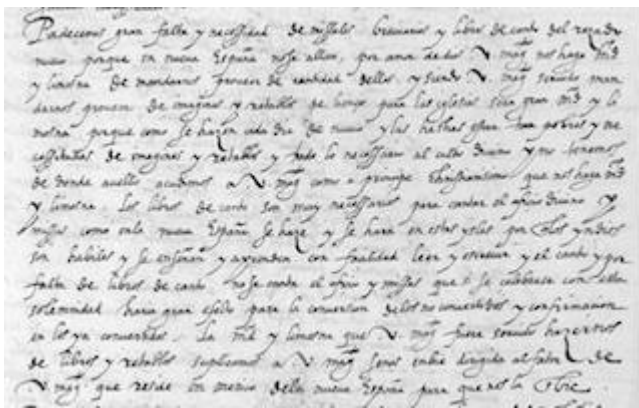 Padecemos gran falta y necessidad de missales breviarios y libros de canto del rezado
nuevo porque en nueva España no se allan, por amor de dios V. magt nos haga md
y limosna de mandarnos proveer de cantidad dellos y siendo V. magt servido man
darnos proveer de imagines y retablos de lienço para las iglesias sera gran md y li
mosna porque como se hazen cada dia de nuevo y las hechas estan tan pobres y ne
cessitadas de imagines y retablos y todo lo necessario al culto divino y no tenemos
de donde avello acudimos a V. magt como a principe christianissimo que nos haga md
y limosna. los libros de canto son muy necessarios para cantar el oficio divino y
missas como en la nueva España se haze y se hara en estas yslas por los yndios
son habiles y se enseñan y aprenden con facilidad leer y escrevir y el canto y por
falta de libros de canto no se canta el oficio y missas que si se celebrase con esta
solemnidad haria gran efecto para la conversion de los no convertidos y confirmacion
en los ya convertidos. La md y limosna que V. magt fuere servido hazernos
de libros y retablos suplicamos a V. magt se nos enbie dirigido al fator de
V. magt que reside en mexico de la nueva España para que nos la enbie.